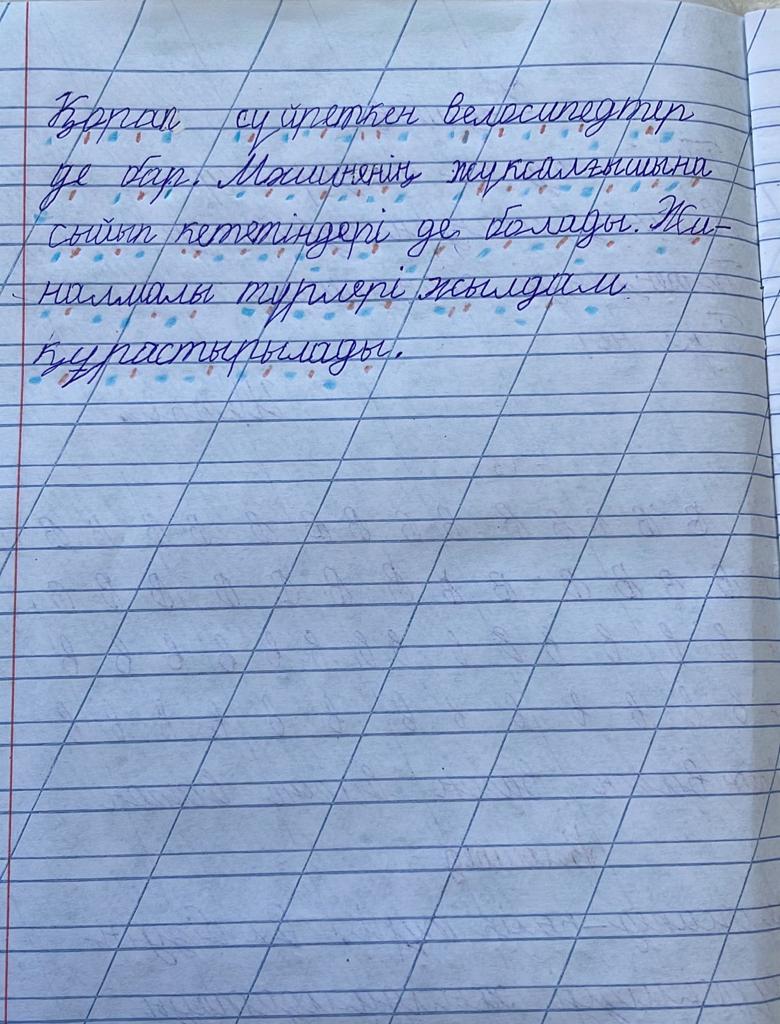 Қорап сүйреткен велосипедтер
де бар. Мәшиненің жүксалғышына
сыйып кететіндері де болады. Жи-
налмалы түрлері жылдам
құрастырылады.